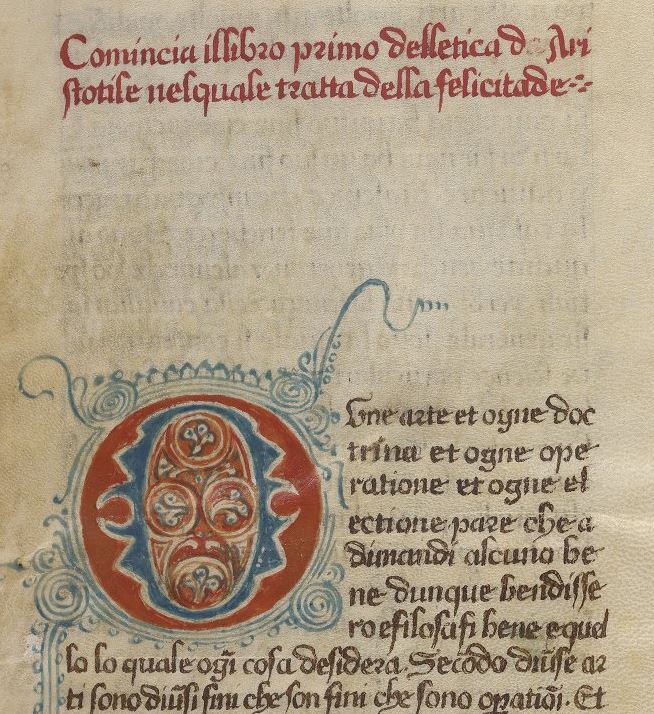 Comincia illibro primo delletica d Ari
stotile nelquale tratta della felicitade
Ogne arte et ogne doc
trina et ogne ope
ratione et ogne el
ectione pare che a
dimandi alcuno be
ne dunque bendisse
ro efilosafi bene equel
lo lo quale ogĩ cosa desidera. Secõdo diũse ar
ti sono diũsi fini che son fini che sono opatiõi. Et